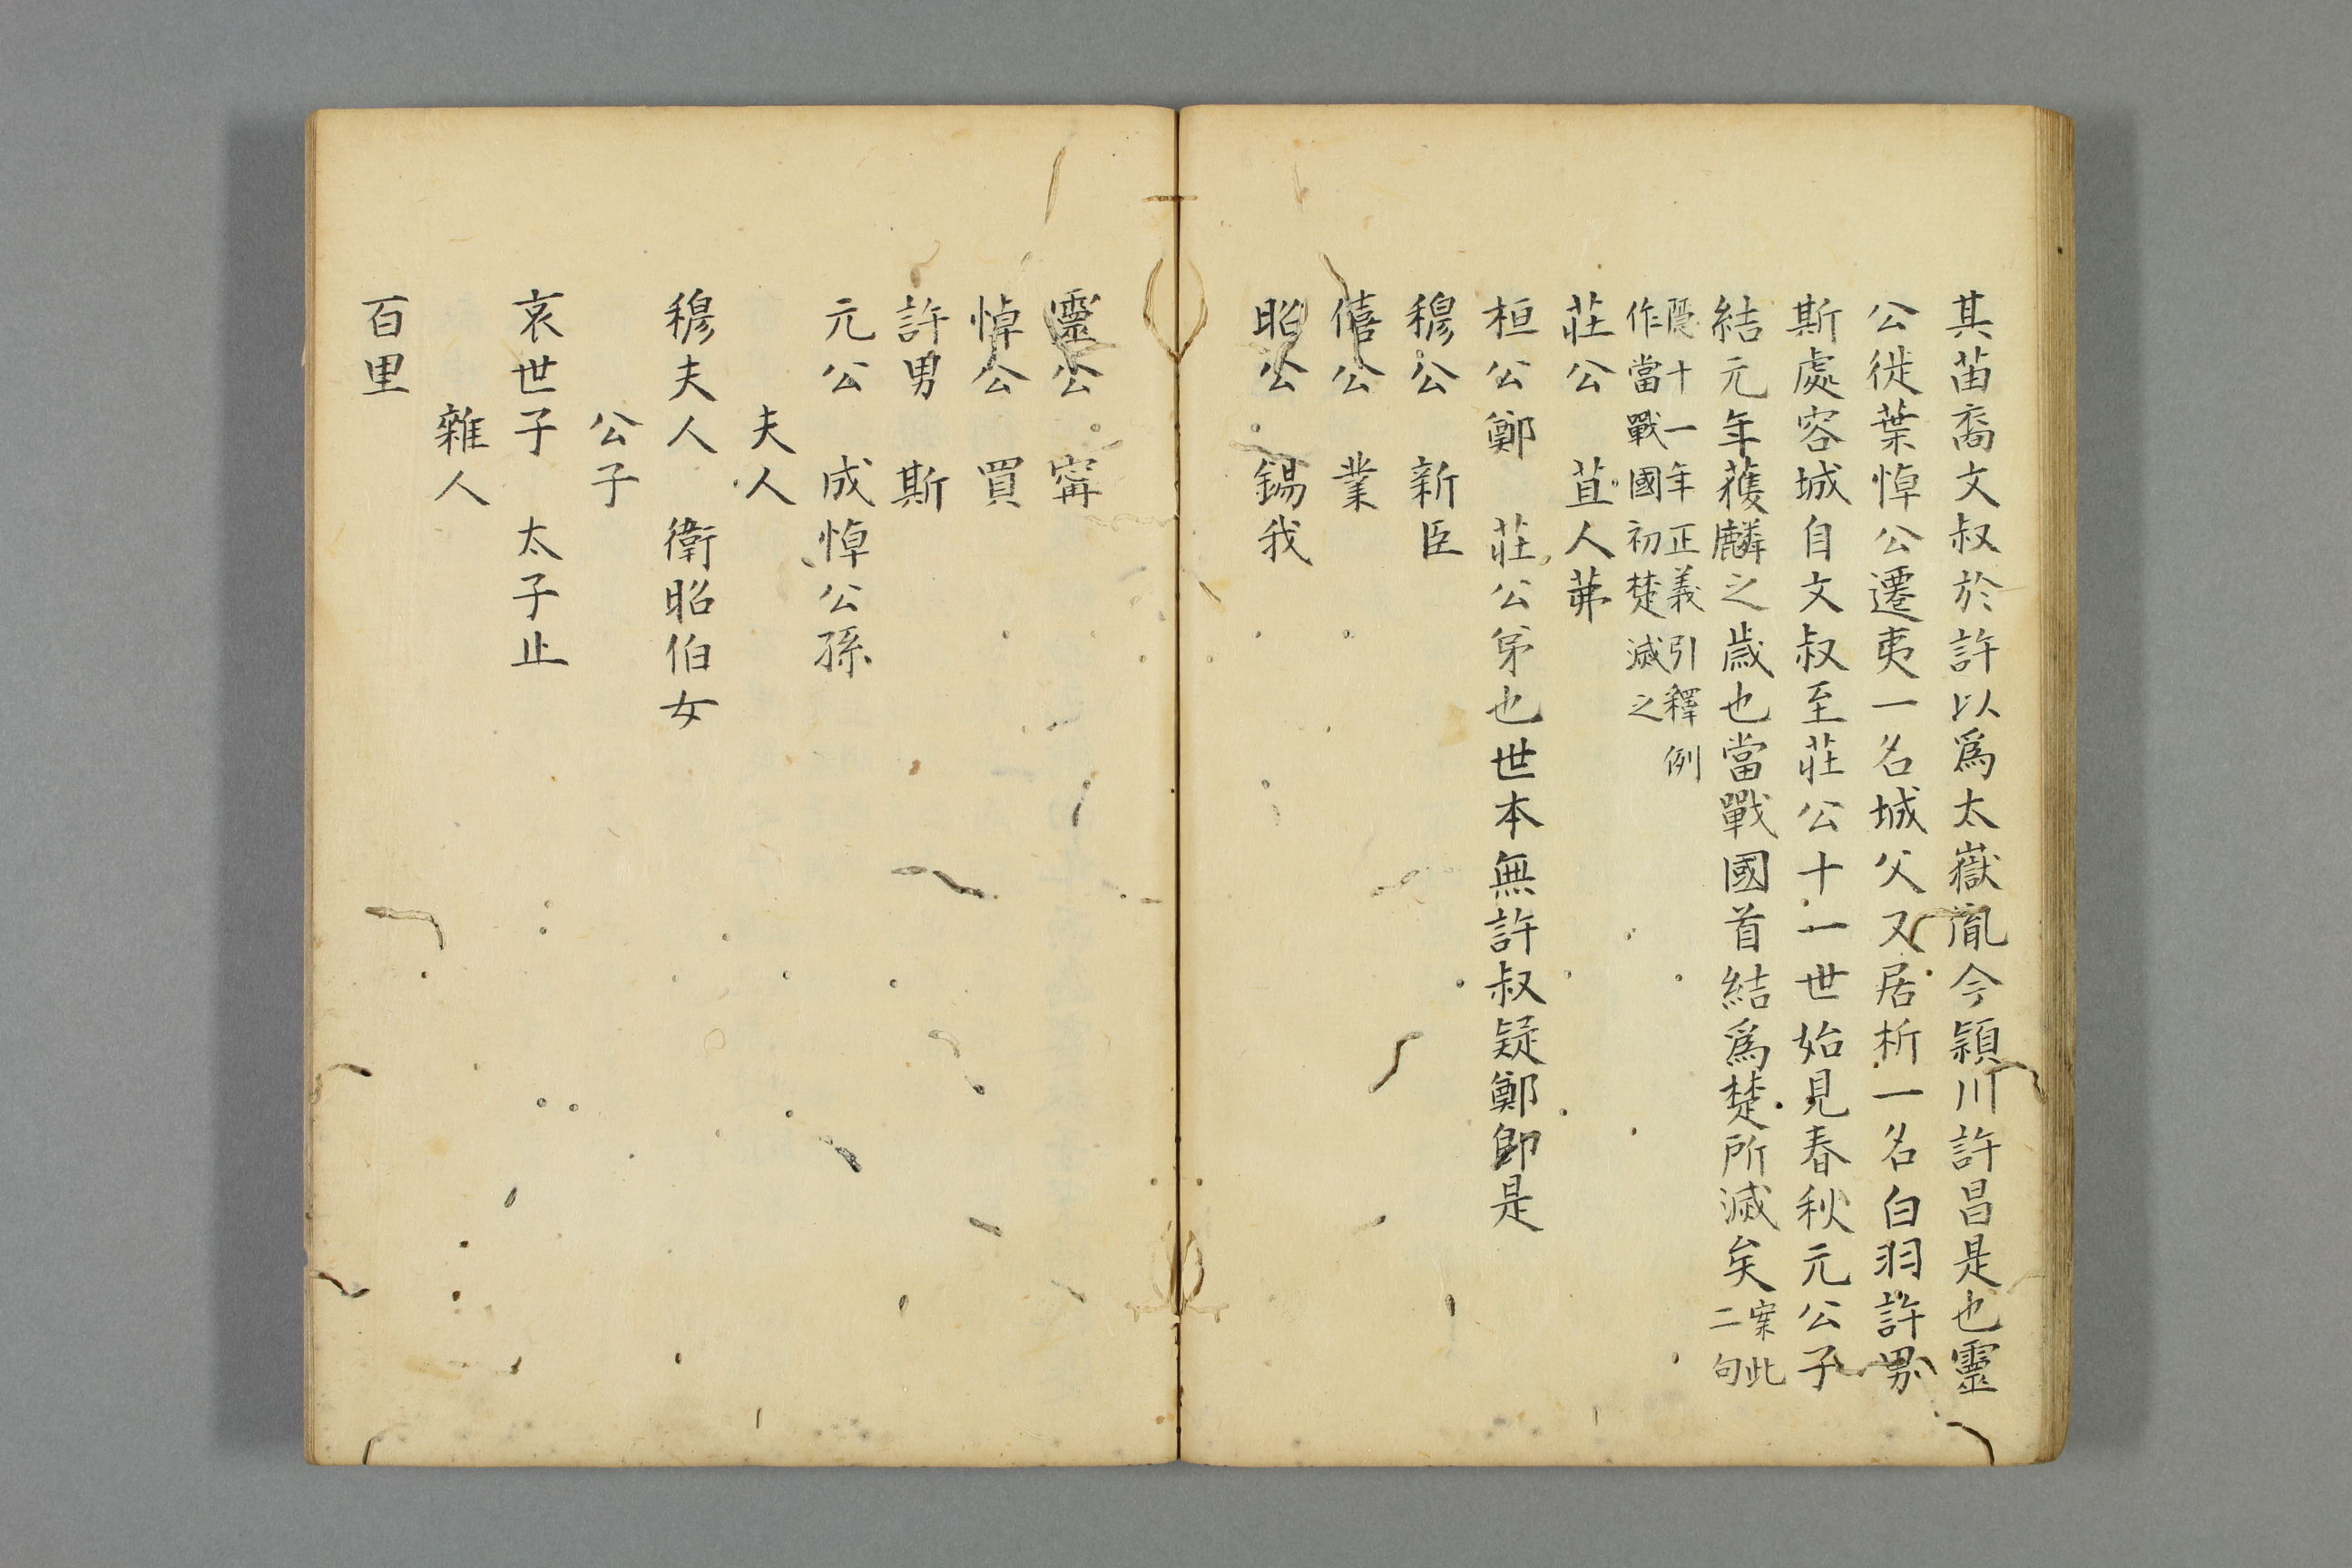 其苗裔文叔於許以爲太嶽胤今潁川許昌是也靈
公徙葉悼公遷夷一名城父又居析一名白羽許男
斯處容城自文叔至莊公十一世始見春秋元公子
結元年獲麟之歲也當戰國首結爲楚所滅矣案此二句
隱十一年正義引釋例
作當戰國初楚滅之
莊公　苴人茀
桓公鄭　莊公弟也世本無許叔疑鄭卽是
穆公　新臣
僖公　業
昭公　錫我
靈公　甯
悼公　買
許男　斯
元公　成悼公孫
夫人
穆夫人　衛昭伯女
公子
哀世子　太子止
雜人
百里